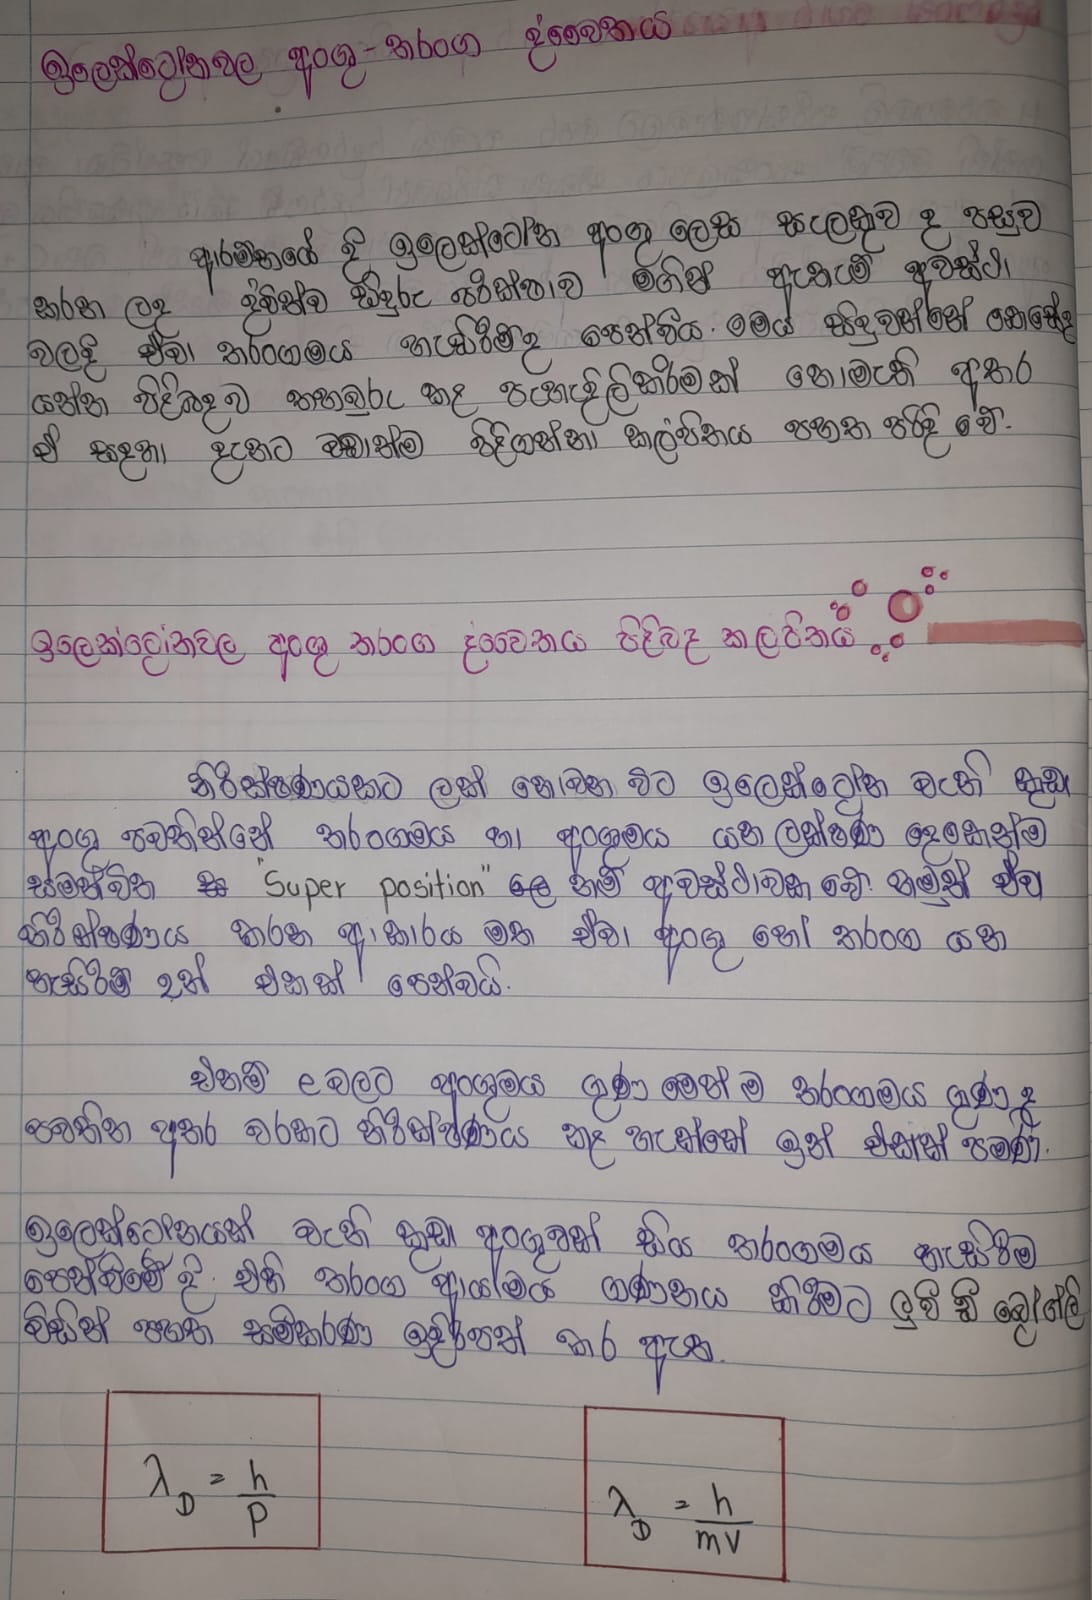 ඉලෙක්ට්‍රෝනවල අංශු - තරංග ද්වෛතය
ආරම්භයේ දී ඉලෙක්ට්‍රෝන අංශු ලෙස සැලකුව ද පසුව
කරන ලද ද්විත්ව සිදුරු පරීක්ෂාව මගින් ඇතැම් අවස්ථා
වලදී ඒවා තරංගමය හැසිරීම් ද පෙන්වීය. මෙය සිදුවන්නේ කෙසේද
යන්න පිළිබඳව තහවුරු කළ පැහැදිලිකිරීමක් නොමැති අතර
ඒ සඳහා දැනට වඩාත්ම පිළිගන්නා කල්පිතය පහත පරිදි වේ.
ඉලෙක්ට්‍රෝනවල අංශු තරංග ද්වෛතය පිළිබඳ කල්පිතය
නිරීක්ෂණයකට ලක් නොවන විට ඉලෙක්ට්‍රෝන වැනි කුඩා
අංශු පවතින්නේ තරංගමය හා අංශුමය යන ලක්ෂණ දෙකෙන්ම
සමන්විත "Super position" නම් අවස්ථාවක වේ. නමුත් ඒවා
නිරීක්ෂණය කරන ආකාරය මත ඒවා අංශු හෝ තරංග යන
හැසිරීම් වලින් එකක් පෙන්වයි.
එනම් ඒවලට අංශුමය ගුණ මෙන් ම තරංගමය ගුණ ද
පවතින අතර වරකට නිරීක්ෂණය කළ හැක්කේ ඉන් එකක් පමණි.
ඉලෙක්ට්‍රෝනයක් වැනි කුඩා අංශුවක් සිය තරංගමය හැසිරීම
පෙන්වීමේ දී එහි තරංග ආයාමය ගණනය කිරීමට ලුවී ඩී බ්‍රෝග්ලි
විසින් පහත සමීකරණ ඉදිරිපත් කර ඇත.
λ_D = h/P
λ_D = h/mv